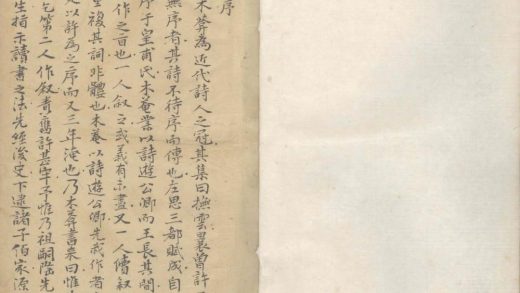 序
木葊為近代詩人之冠其集曰撫雲曩曾許
無序者其詩不待序而傳也左思三都賦成自
序于皇甫氏木葊業以詩遊公卿而王長其間
作之旨也一人叙之或義有未盡又一人續叙
複其詞非體也木葊以詩遊公卿先我作者
処以許為之序而又三年淹也乃木葊書來曰惟
乞第二人作叙者舊許甚牢予惟乃祖嗣蔭先
生指示讀書之法先經後史下逮諸子百家源